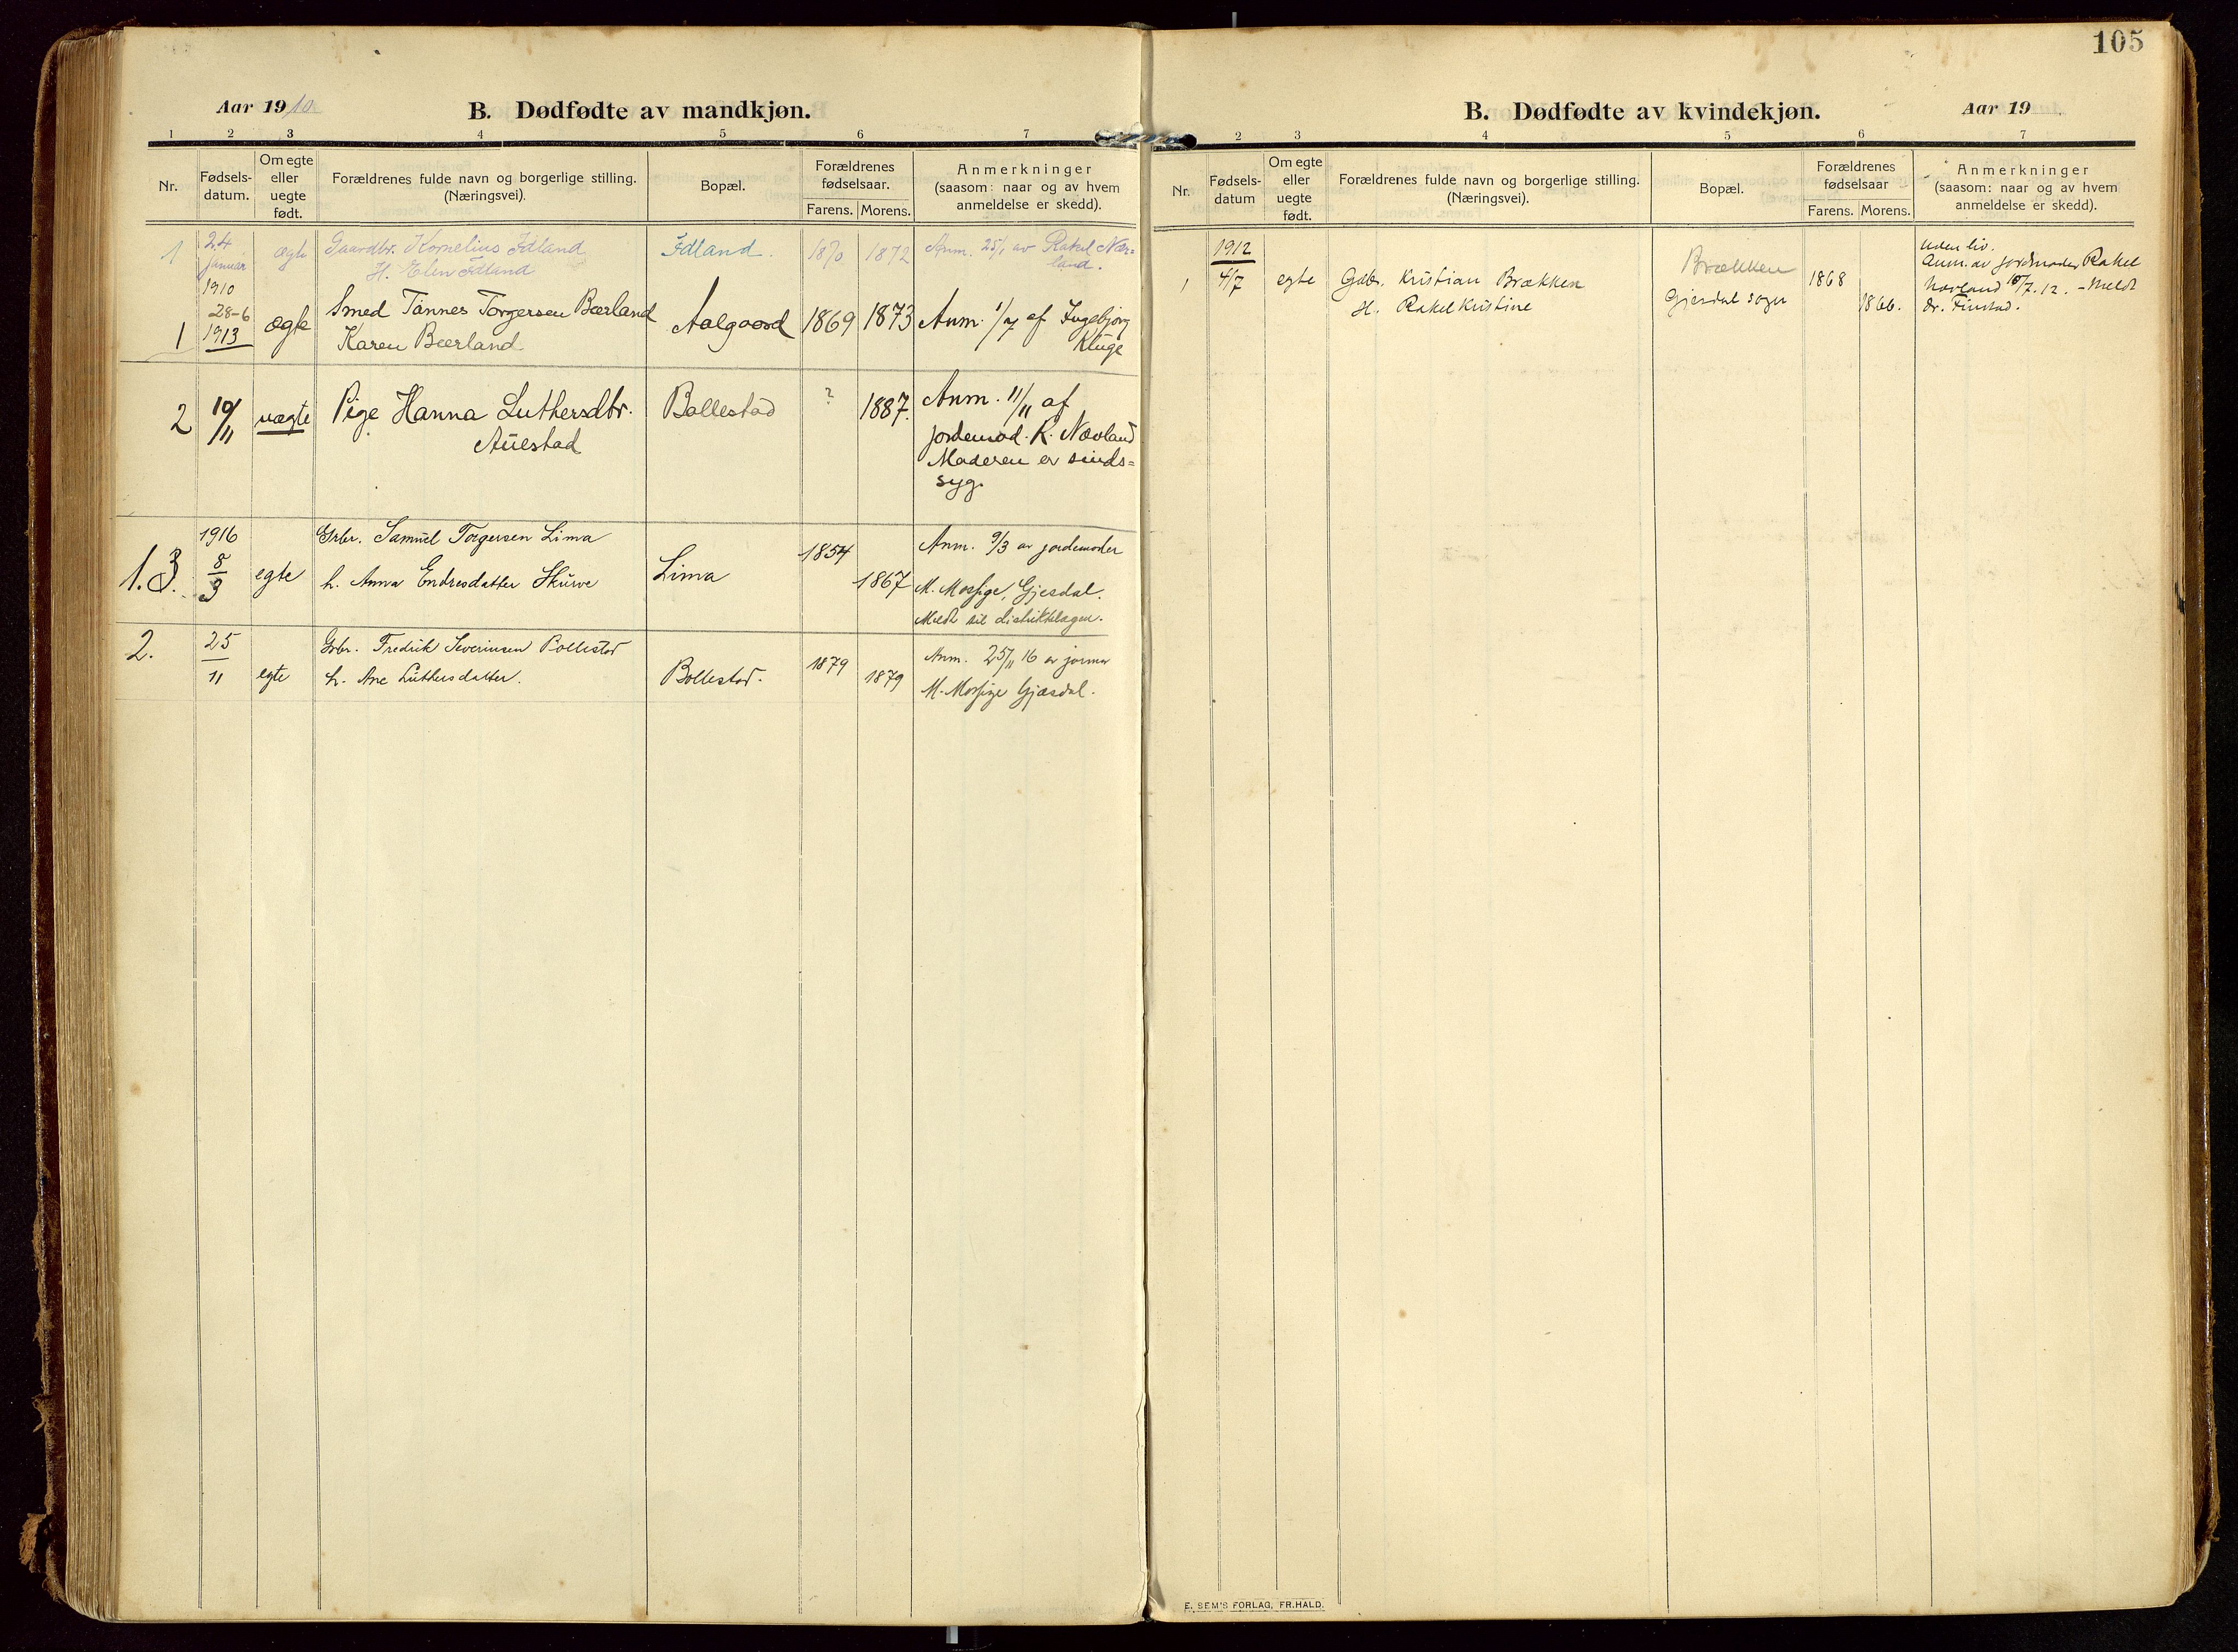 105
Aar 1910
B. Dødfødte av mandkjøn.
1 2 3 4 5 6 7
Nr.
Fødsels-
datum.
Om egte
eller
uegte
født.
Forældrenes fulde navn og borgerlige stilling.
(Næringsvei).
Bopæl.
Forældrenes
fødselsaar.
Farens. Morens.
Anmerkninger
(saasom: naar og av hvem
anmeldelse er skedd).
1 24 januar 1910 ægte Gaardbr. Kornelius Idland Idland. 1870 1872 Anm. 25/1 av Rakel Nær-
H. Elen Idland land.
1 28-6 1913 ægte Smed Tønnes Torgersen Bærland Aalgaard 1869 1873 Anm. 1/7 af Ingebjorg
Karen Bærland Kluge
2 10/11 uægte Pige Hanna Luthersdtr. Bollestad ? 1887. Anm. 11/11 af
Auestad jordemod. R. Nævland
Moderen er sinds=
syg.
1916
1. 3. 8/3 egte Grbr. Samuel Torgersen Lima Lima 1854 1867 Anm. 9/3 av jordemoder
h. Anna Endresdatter Skurve M. Mossige, Gjesdal.
Meldt til distriktslægen.
2. 25/11 egte Grbr. Fredrik Severinsen Bollestad Bollestad. 1879 1879 Anm. 25/11 16 av jormor
h. Ane Luthersdatter. M. Mossige Gjæsdal.
B. Dødfødte av kvindekjøn.
Aar 19
2 3 4 5 6 7
Nr.
Fødsels-
datum
Om egte
eller
uegte
født.
Forældrenes fulde navn og borgerlige stilling.
(Næringsvei).
Bopæl.
Forældrenes
fødselsaar
Farens. Morens.
Anmerkninger
(saasom: naar og av hvem
anmeldelse er skedd).
1912
1 4/7 egte Gdbr. Kristian Brækken Brækken 1868 1866.
H. Rakel Kristine Gjesdal sogn
Uden liv.
Anm. av jordmoder Rakel
Nævland 10/7.12. - Meldt
dr. Finstad.
E. SEM'S FORLAG, FR.HALD.